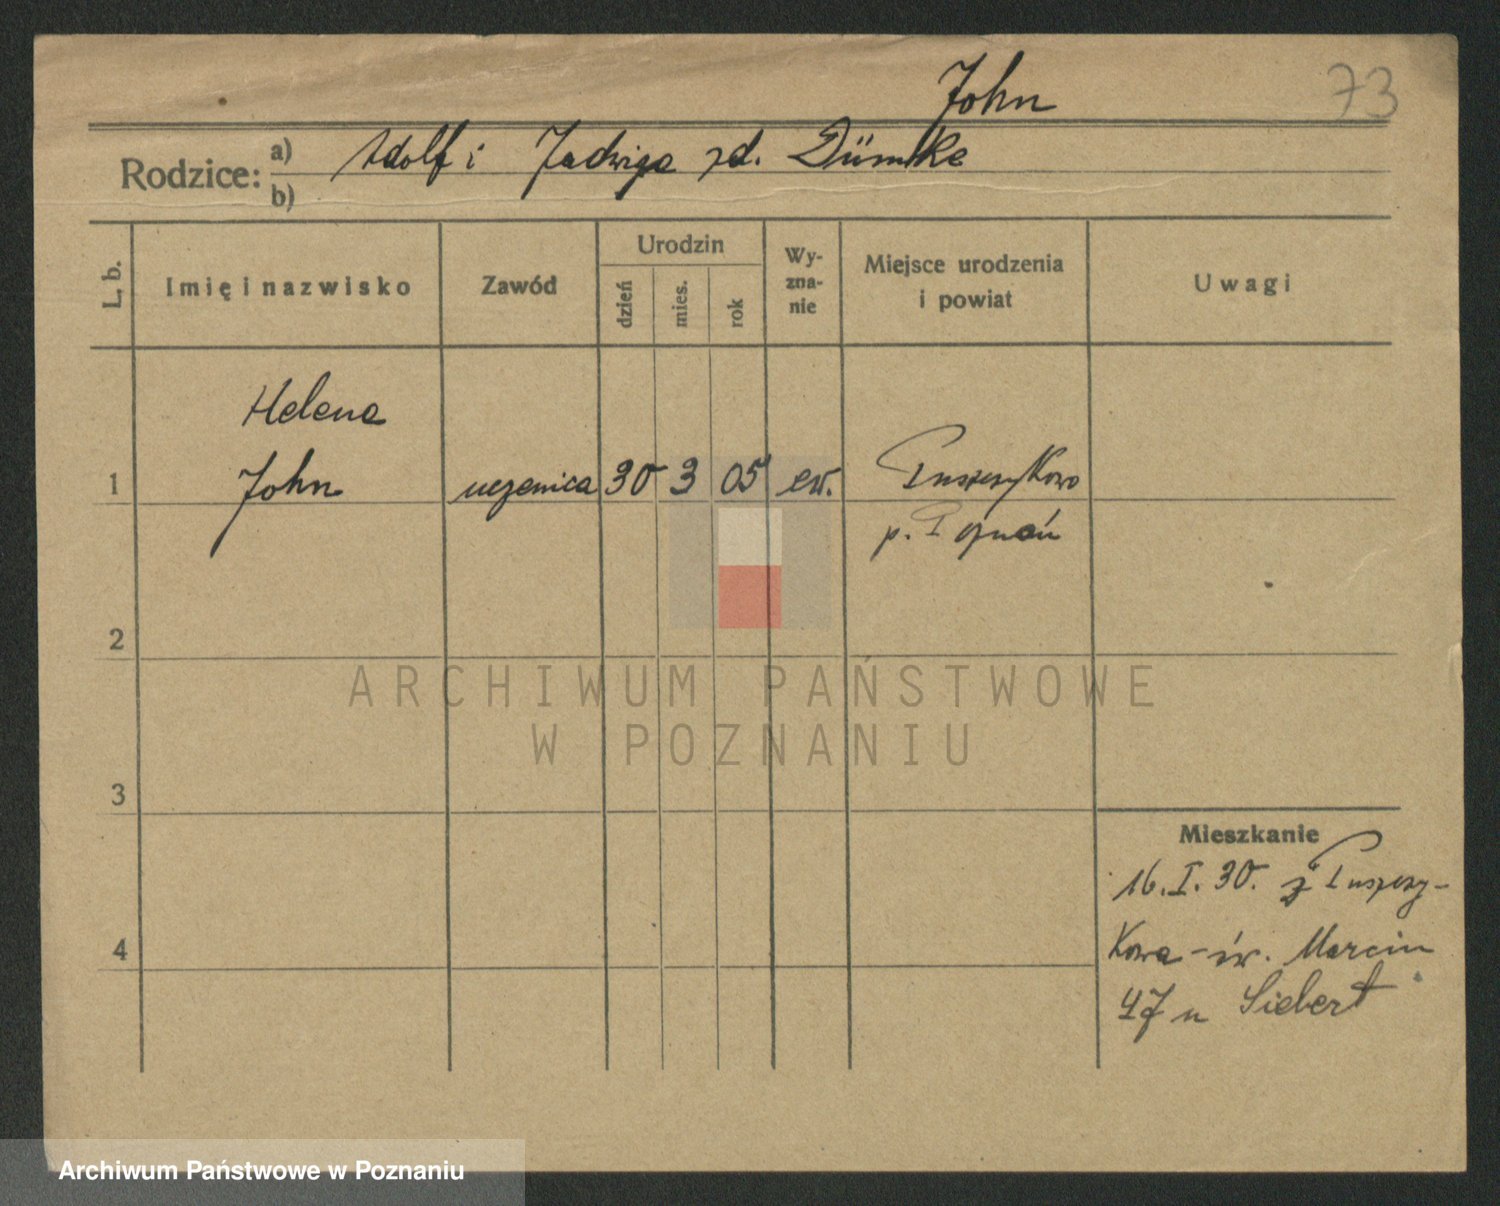 John
73
Rodzice: a) Adolf i Jadwiga zd. Dümke
b)
L. b.
Imię i nazwisko
Zawód
Urodzin
dzień
mies.
rok
Wy-
zna-
nie
Miejsce urodzenia
i powiat
Uwagi
Helena
1 John uczenica 30 3 05 ew. Puszczykowo
p. Poznań
2
3
4
Mieszkanie
16. I. 30. z Puszczy-
kowa - św. Marcin
47 u Siebert
ARCHIWUM PAŃSTWOWE
W POZNANIU
Archiwum Państwowe w Poznaniu